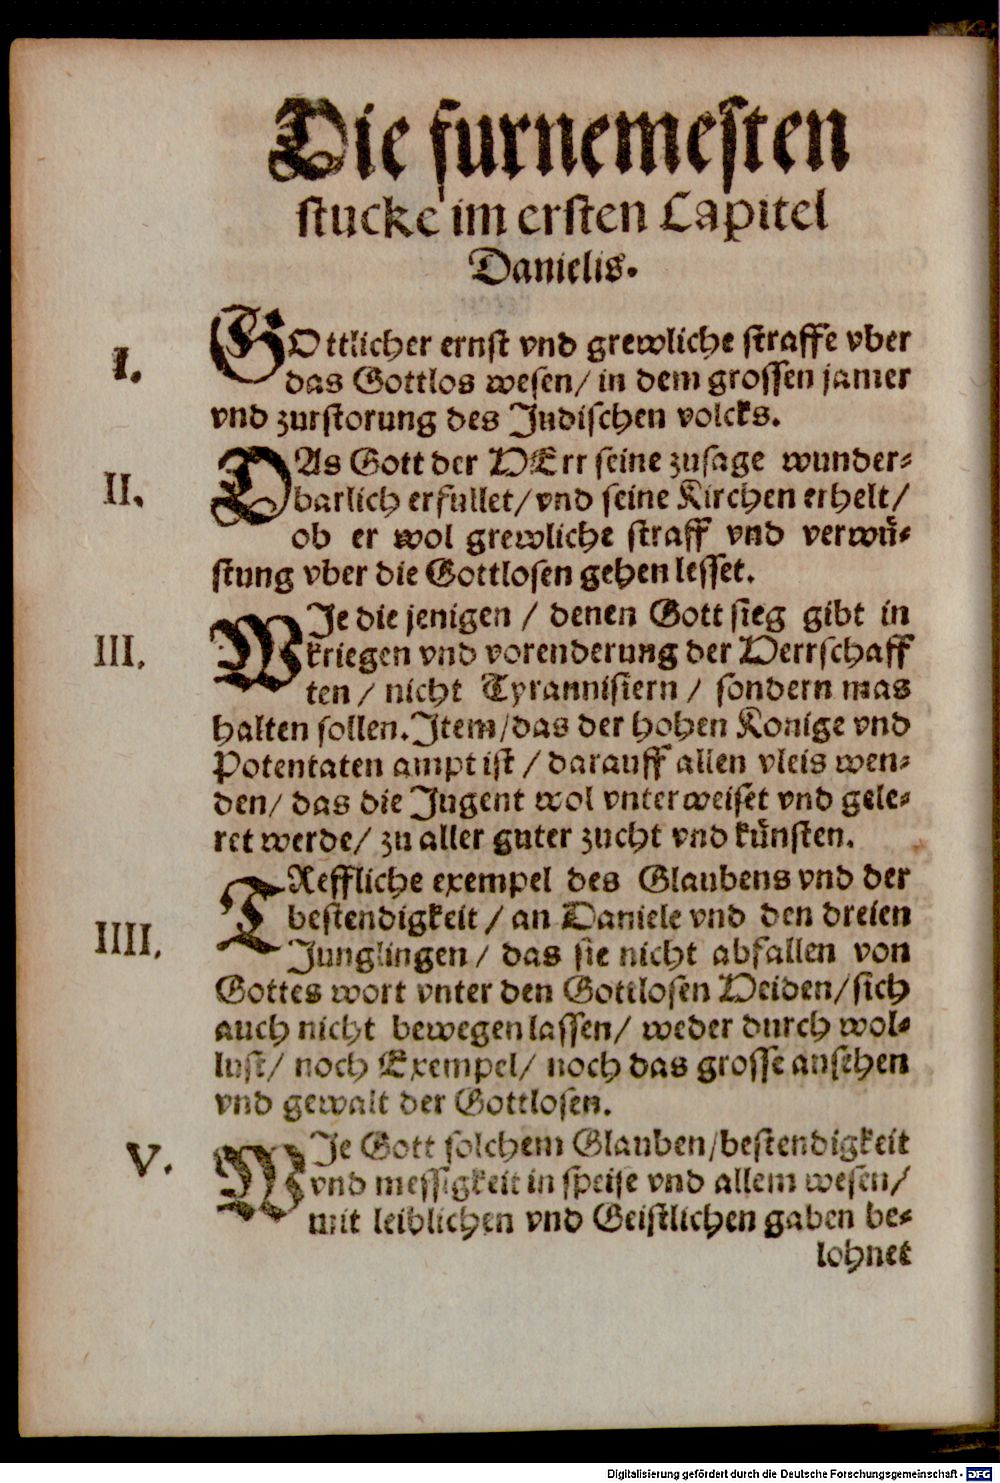 Die furnemesten
stucke im ersten Capitel
Danielis.
I.
GOttlicher ernst vnd grewliche straffe vber
das Gottlos wesen/ in dem grossen jamer
vnd zurstorung des Judischen volcks.
II.
DAs Gott der HErr seine zusage wunder-
barlich erfullet/ vnd seine Kirchen erhelt/
ob er wol grewliche straff vnd verwü-
stung vber die Gottlosen gehen lesset.
III.
WJe die jenigen / denen Gott sieg gibt in
kriegen vnd vorenderung der Herrschaff
ten / nicht Tyrannisiern / sondern mas
halten sollen. Jtem/das der hohen Konige vnd
Potentaten ampt ist / darauff allen vleis wen-
den/ das die Jugent wol vnterweiset vnd gele-
ret werde/ zu aller guter zucht vnd künsten.
IIII.
TReffliche exempel des Glaubens vnd der
bestendigkeit / an Daniele vnd den dreien
Junglingen / das sie nicht abfallen von
Gottes wort vnter den Gottlosen Heiden/sich
auch nicht bewegen lassen/ weder durch wol-
lust/ noch Exempel/ noch das grosse ansehen
vnd gewalt der Gottlosen.
V.
WJe Gott solchem Glauben/bestendigkeit
vnd messigkeit in speise vnd allem wesen/
mit leiblichen vnd Geistlichen gaben be-
lohnet
Digitalisierung gefördert durch die Deutsche Forschungsgemeinschaft - DFG